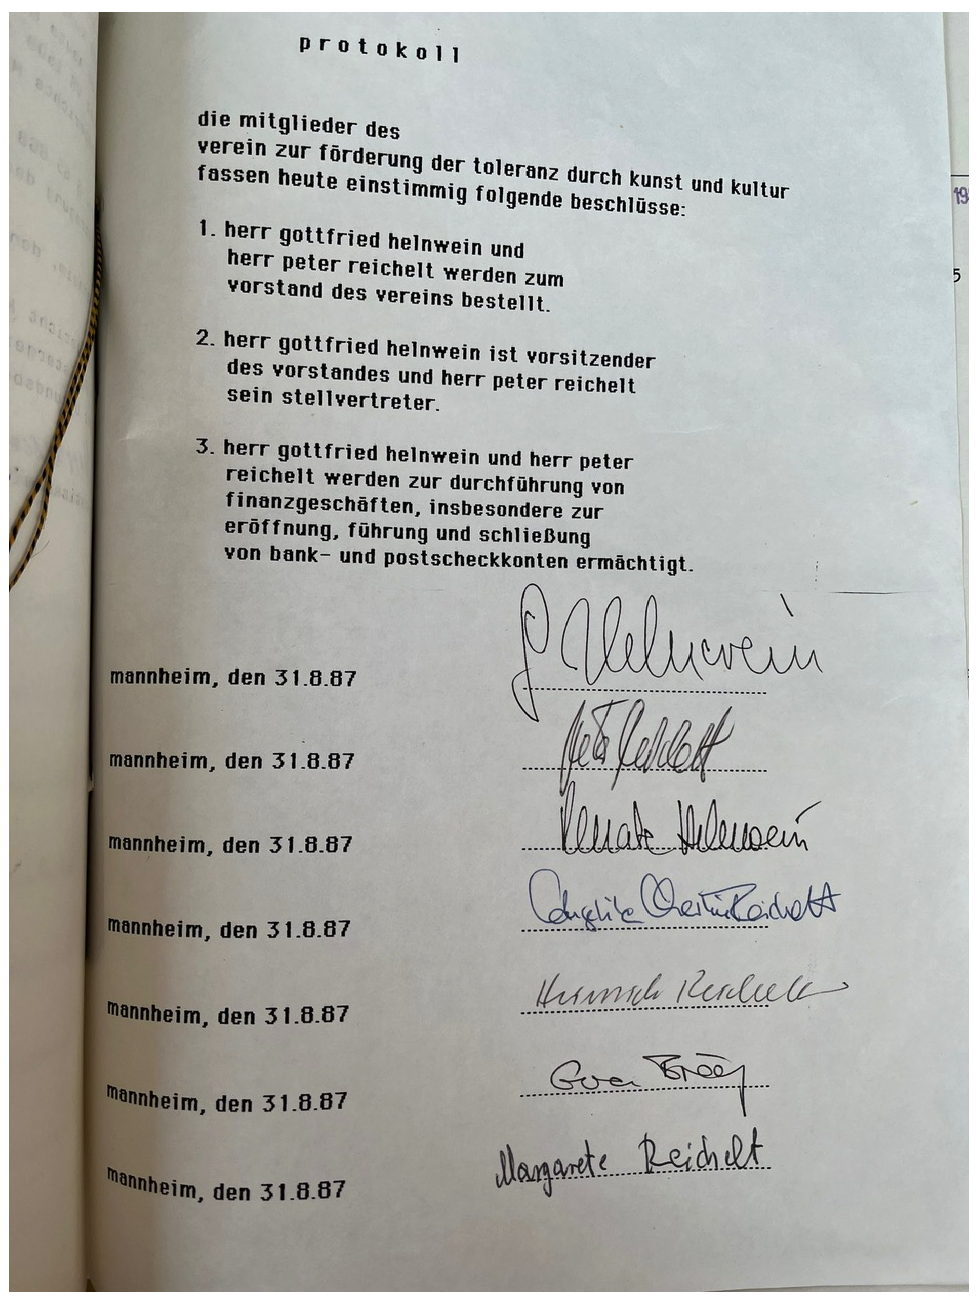 protokoll
die mitglieder des
verein zur förderung der toleranz durch kunst und kultur
fassen heute einstimmig folgende beschlüsse:
1. herr gottfried helnwein und
herr peter reichelt werden zum
vorstand des vereins bestellt.
2. herr gottfried helnwein ist vorsitzender
des vorstandes und herr peter reichelt
sein stellvertreter.
3. herr gottfried helnwein und herr peter
reichelt werden zur durchführung von
finanzgeschäften, insbesondere zur
eröffnung, führung und schließung
von bank- und postscheckkonten ermächtigt.
mannheim, den 31.8.87 G Helnwein
mannheim, den 31.8.87 Peter Reichelt
mannheim, den 31.8.87 Renate Helnwein
mannheim, den 31.8.87 Angelika Reichelt
mannheim, den 31.8.87 Heinrich Reichelt
mannheim, den 31.8.87
mannheim, den 31.8.87 Margarete Reichelt